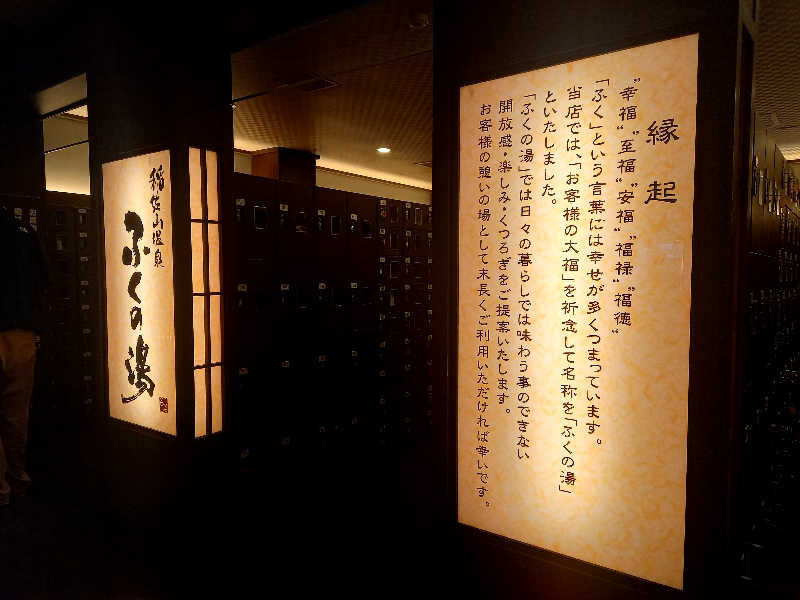 縁起
"幸福" "至福" "安福" "福禄" "福徳"
「ふく」という言葉には幸せが多くつまっています。
当店では、「お客様の大福」を祈念して名称を「ふくの湯」
といたしました。
「ふくの湯」では日々の暮らしでは味わう事のできない
開放感・楽しみ・くつろぎをご提案いたします。
お客様の憩いの場として末長くご利用いただければ幸いです。
稲佐山温泉
ふくの湯